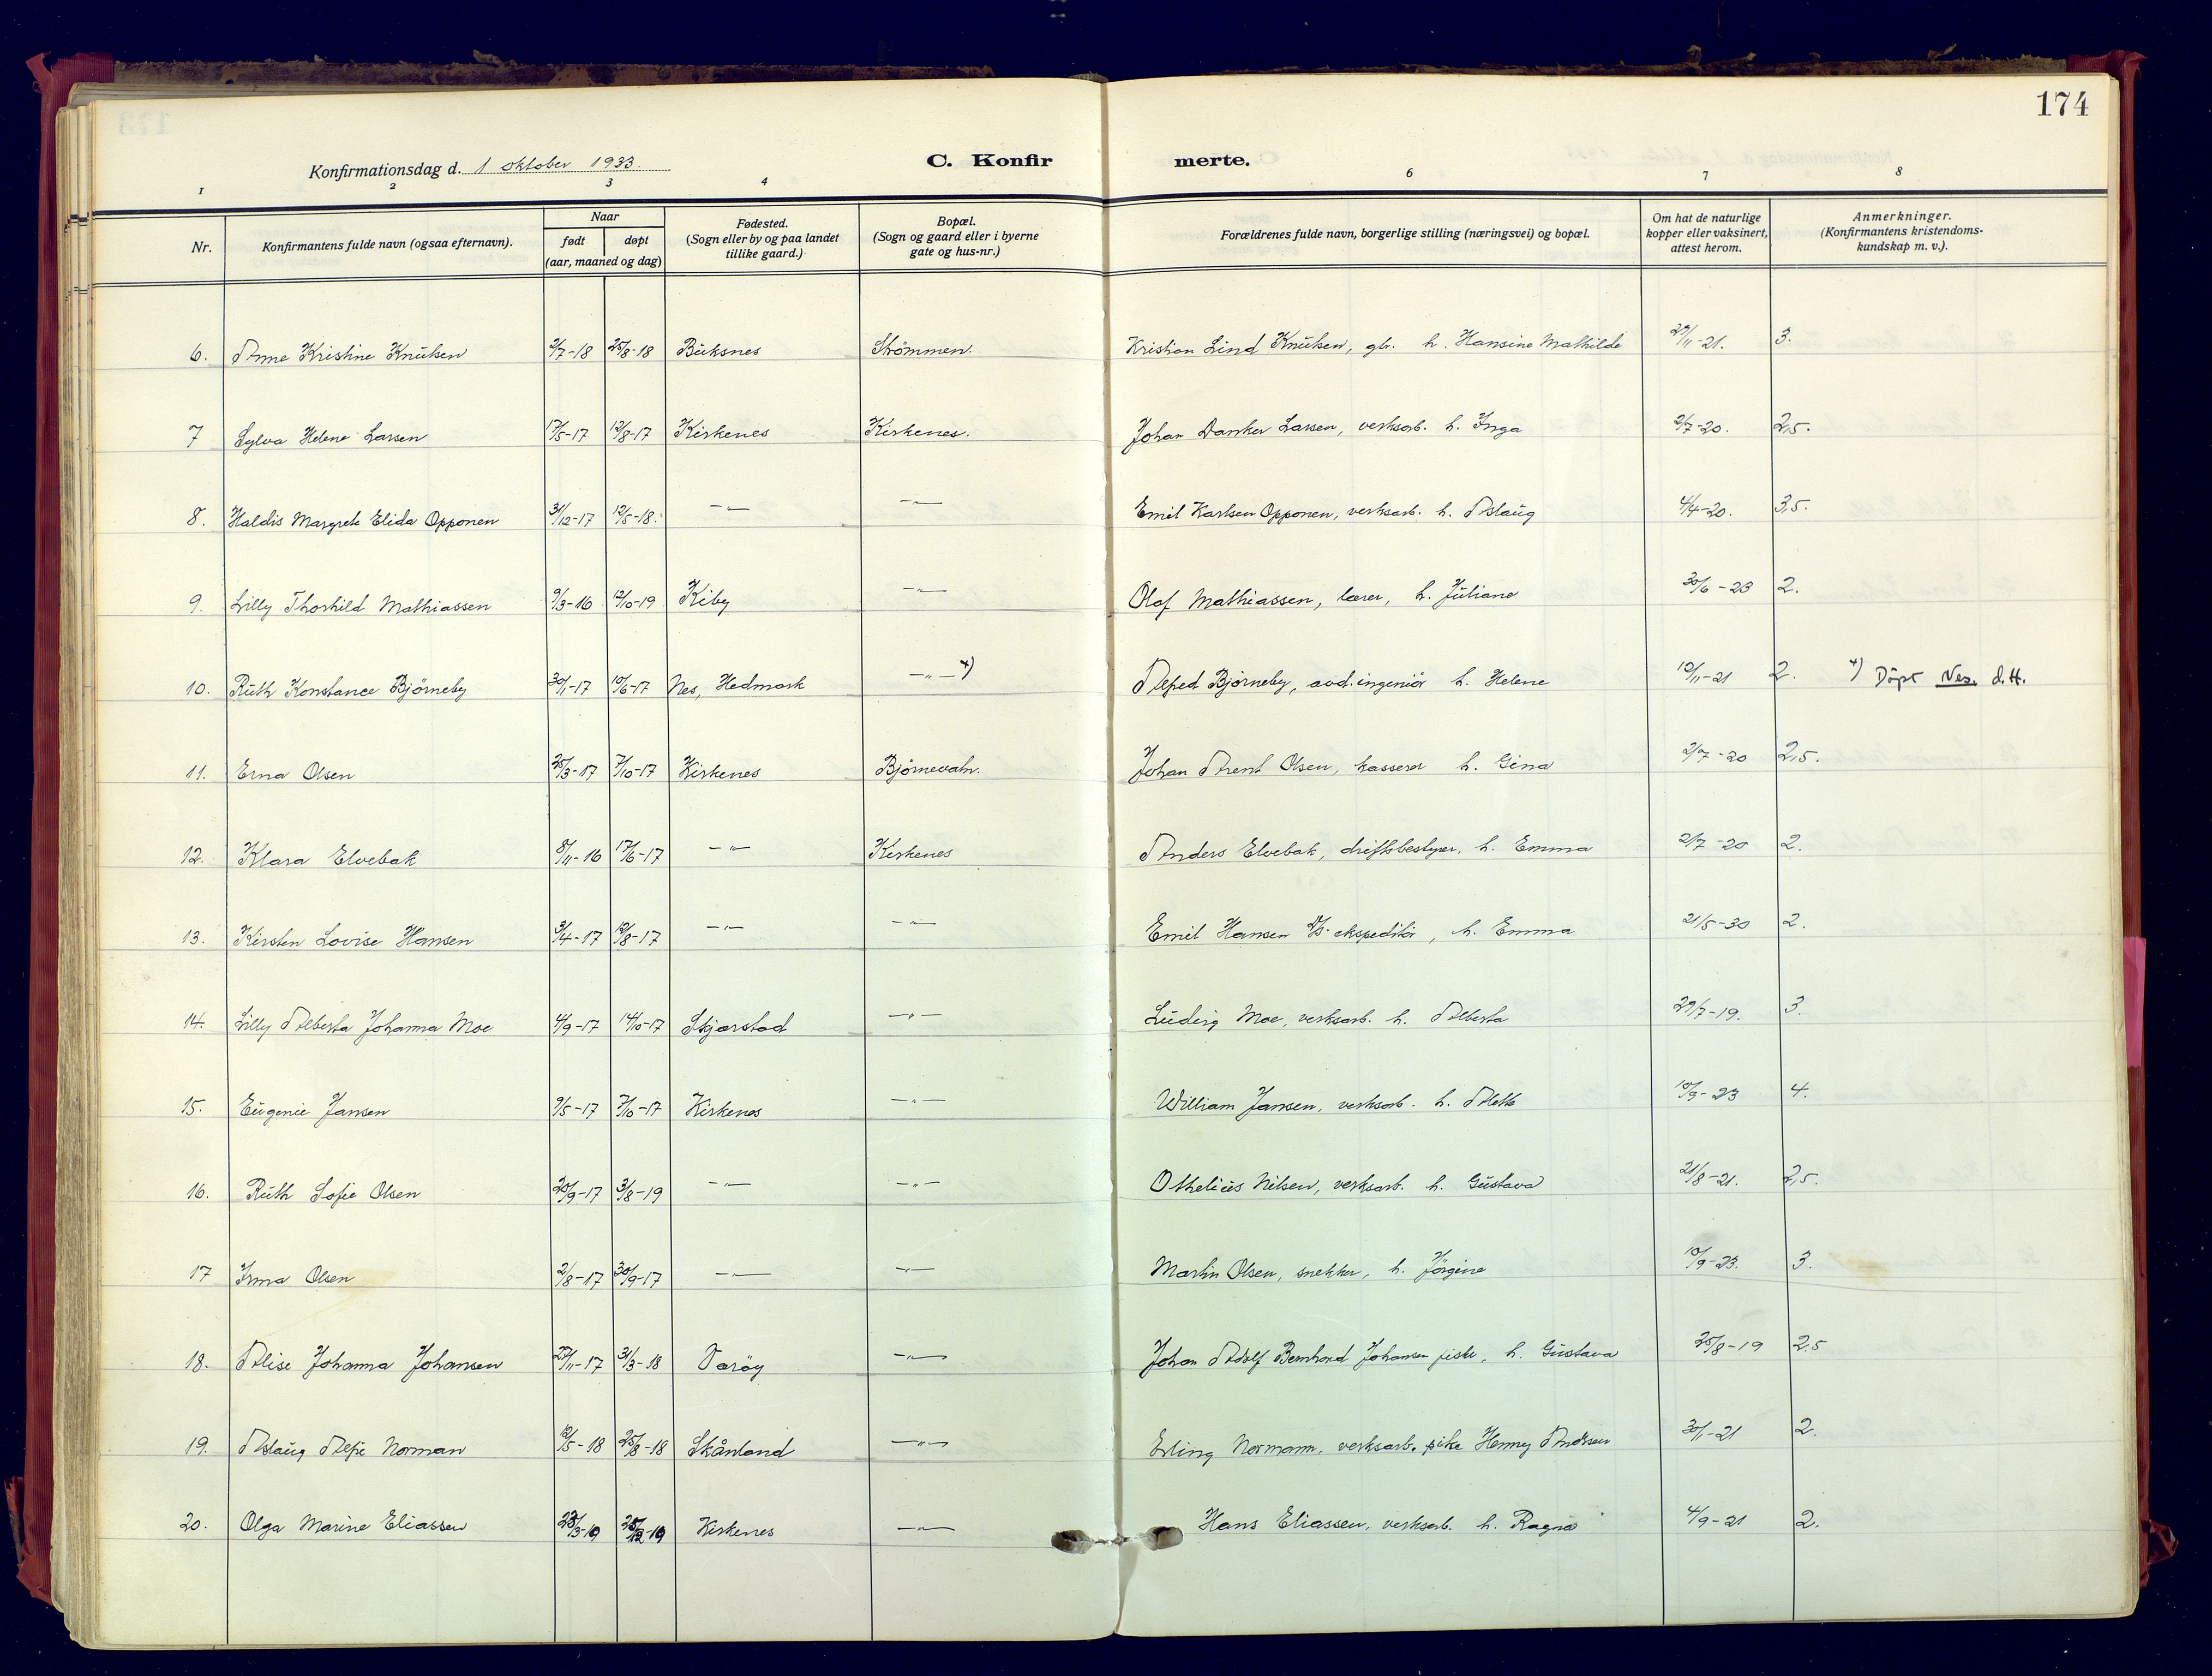 174
Konfirmationsdag d. 1 oktober 1933.
C. Konfir merte.
1 2 3 4 6 7 8
Nr. Konfirmantens fulde navn (ogsaa efternavn). Naar født døpt (aar, maaned og dag) Fødested. (Sogn eller by og paa landet tillike gaard.) Bopæl. (Sogn og gaard eller i byerne gate og hus-nr.) Forældrenes fulde navn, borgerlige stilling (næringsvei) og bopæl. Om hat de naturlige kopper eller vaksinert, attest herom. Anmerkninger. (Konfirmantens kristendoms-kundskap m. v.).
6. Anne Kristine Knutsen 2/7-18 25/8-18 Buksnes Strömmen. Kristian Lind Knutsen, gbr. h. Hansine Mathilde 29/11-21. 3.
7 Sylva Helene Larsen 17/5-17 12/8-17 Kirkenes Kirkenes. Johan Danker Larsen, verksarb. h. Inga 2/7-20. 2,5.
8. Haldis Margrete Elida Opponen 31/12-17 12/5-18. -"- -"- Emil Karlsen Opponen, verksarb. h. Aslaug 4/4-20. 3,5.
9. Lilly Thorhild Mathiassen 9/3-16 12/10-19 Kiby -"- Olaf Mathiassen, lærer, h. Juliane 30/6-23 2.
10. Ruth Konstance Björneby 30/1-17 10/6-17 Nes, Hedmark -"- x) Alfred Björneby, avd.ingeniör h. Helene 10/11-21 2. x) Döpt Nes. d. H.
11. Erna Olsen 25/3-17 7/10-17 Kirkenes Björnevatn. Johan Arent Olsen, kasserer h. Gina 2/7-20 2,5.
12. Klara Elvebak 8/11-16 17/6-17 -"- Kirkenes Anders Elvebak, driftsbestyrer, h. Emma 2/7-20 2.
13. Kirsten Lovise Hansen 3/4-17 12/8-17 -"- -"- Emil Hansen D/S-ekspeditör, h. Emma 21/5-30 2.
14. Lilly Alberta Johanna Moe 4/9-17 14/10-17 Skjerstad -"- Ludvig Moe, verksarb. h. Alberta 29/7-19. 3.
15. Eugenie Jansen 9/5-17 7/10-17 Kirkenes -"- William Jansen, verksarb. h. Alette 10/9-23 4.
16. Ruth Sofie Olsen 20/9-17 3/8-19 -"- -"- Othelius Nilsen, verksarb. h. Gustava 21/8-21. 2,5.
17 Irma Olsen 2/8-17 30/9-17 -"- -"- Martin Olsen, snekker, h. Jörgine 10/9-23. 3.
18. Alise Johanna Johansen 27/11-17 31/3-18 Væröy -"- Johan Adolf Bernhard Johansen fisker, h. Gustava 25/8-19 2.5
19. Aslaug Alfie Norman 12/5-18 25/8-18 Skånland -"- Erling Normann, verksarb. pike Henny Andssen 30/1-21 2.
20. Olga Marine Eliassen 23/3-19 28/12-19 Kirkenes -"- Hans Eliassen, verksarb. h. Ragna 4/9-21 2.